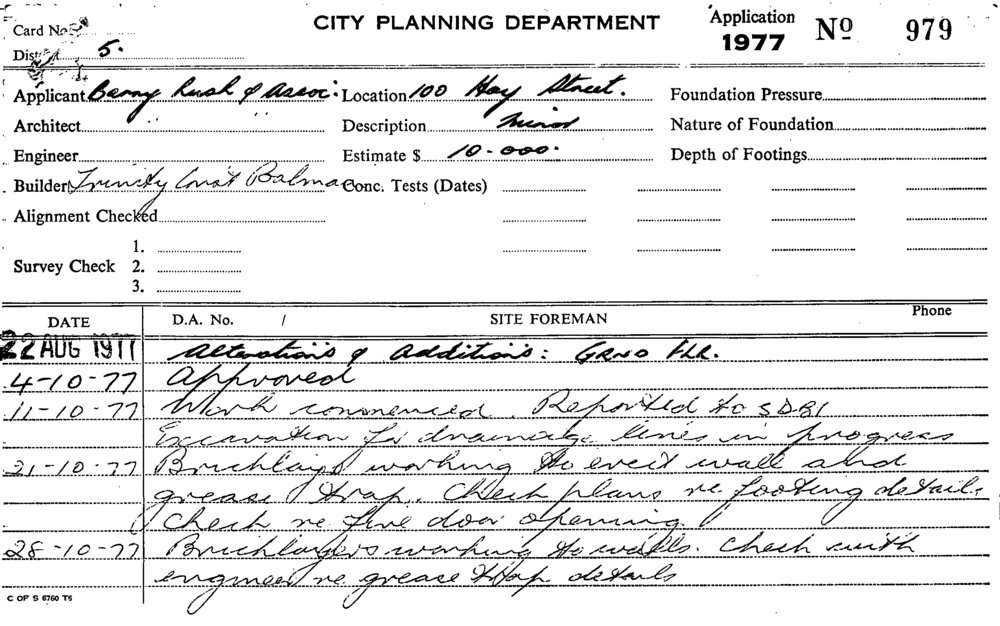 Card No.
CITY PLANNING DEPARTMENT
Application 1977 No 979
District 5.
Applicant Barry Rush & Assoc. Location 100 Hay Street. Foundation Pressure
Architect Description Minor Nature of Foundation
Engineer Estimate $ 10-000. Depth of Footings
Builder Trinity Const Balmain Conc. Tests (Dates)
Alignment Checked
Survey Check 1.
2.
3.
DATE D.A. No. / SITE FOREMAN Phone
22 AUG 1977 Alterations & Additions: GRND FLR.
4-10-77 Approved
11-10-77 Work commenced. Reported to SDBI
Excavation for drainage lines in progress
21-10-77 Bricklayers working to erect wall and
grease trap. Check plans re footing details
Check re fire door opening
28-10-77 Bricklayers working to walls. Check with
engineer re grease trap details
C OF S 6760 T6